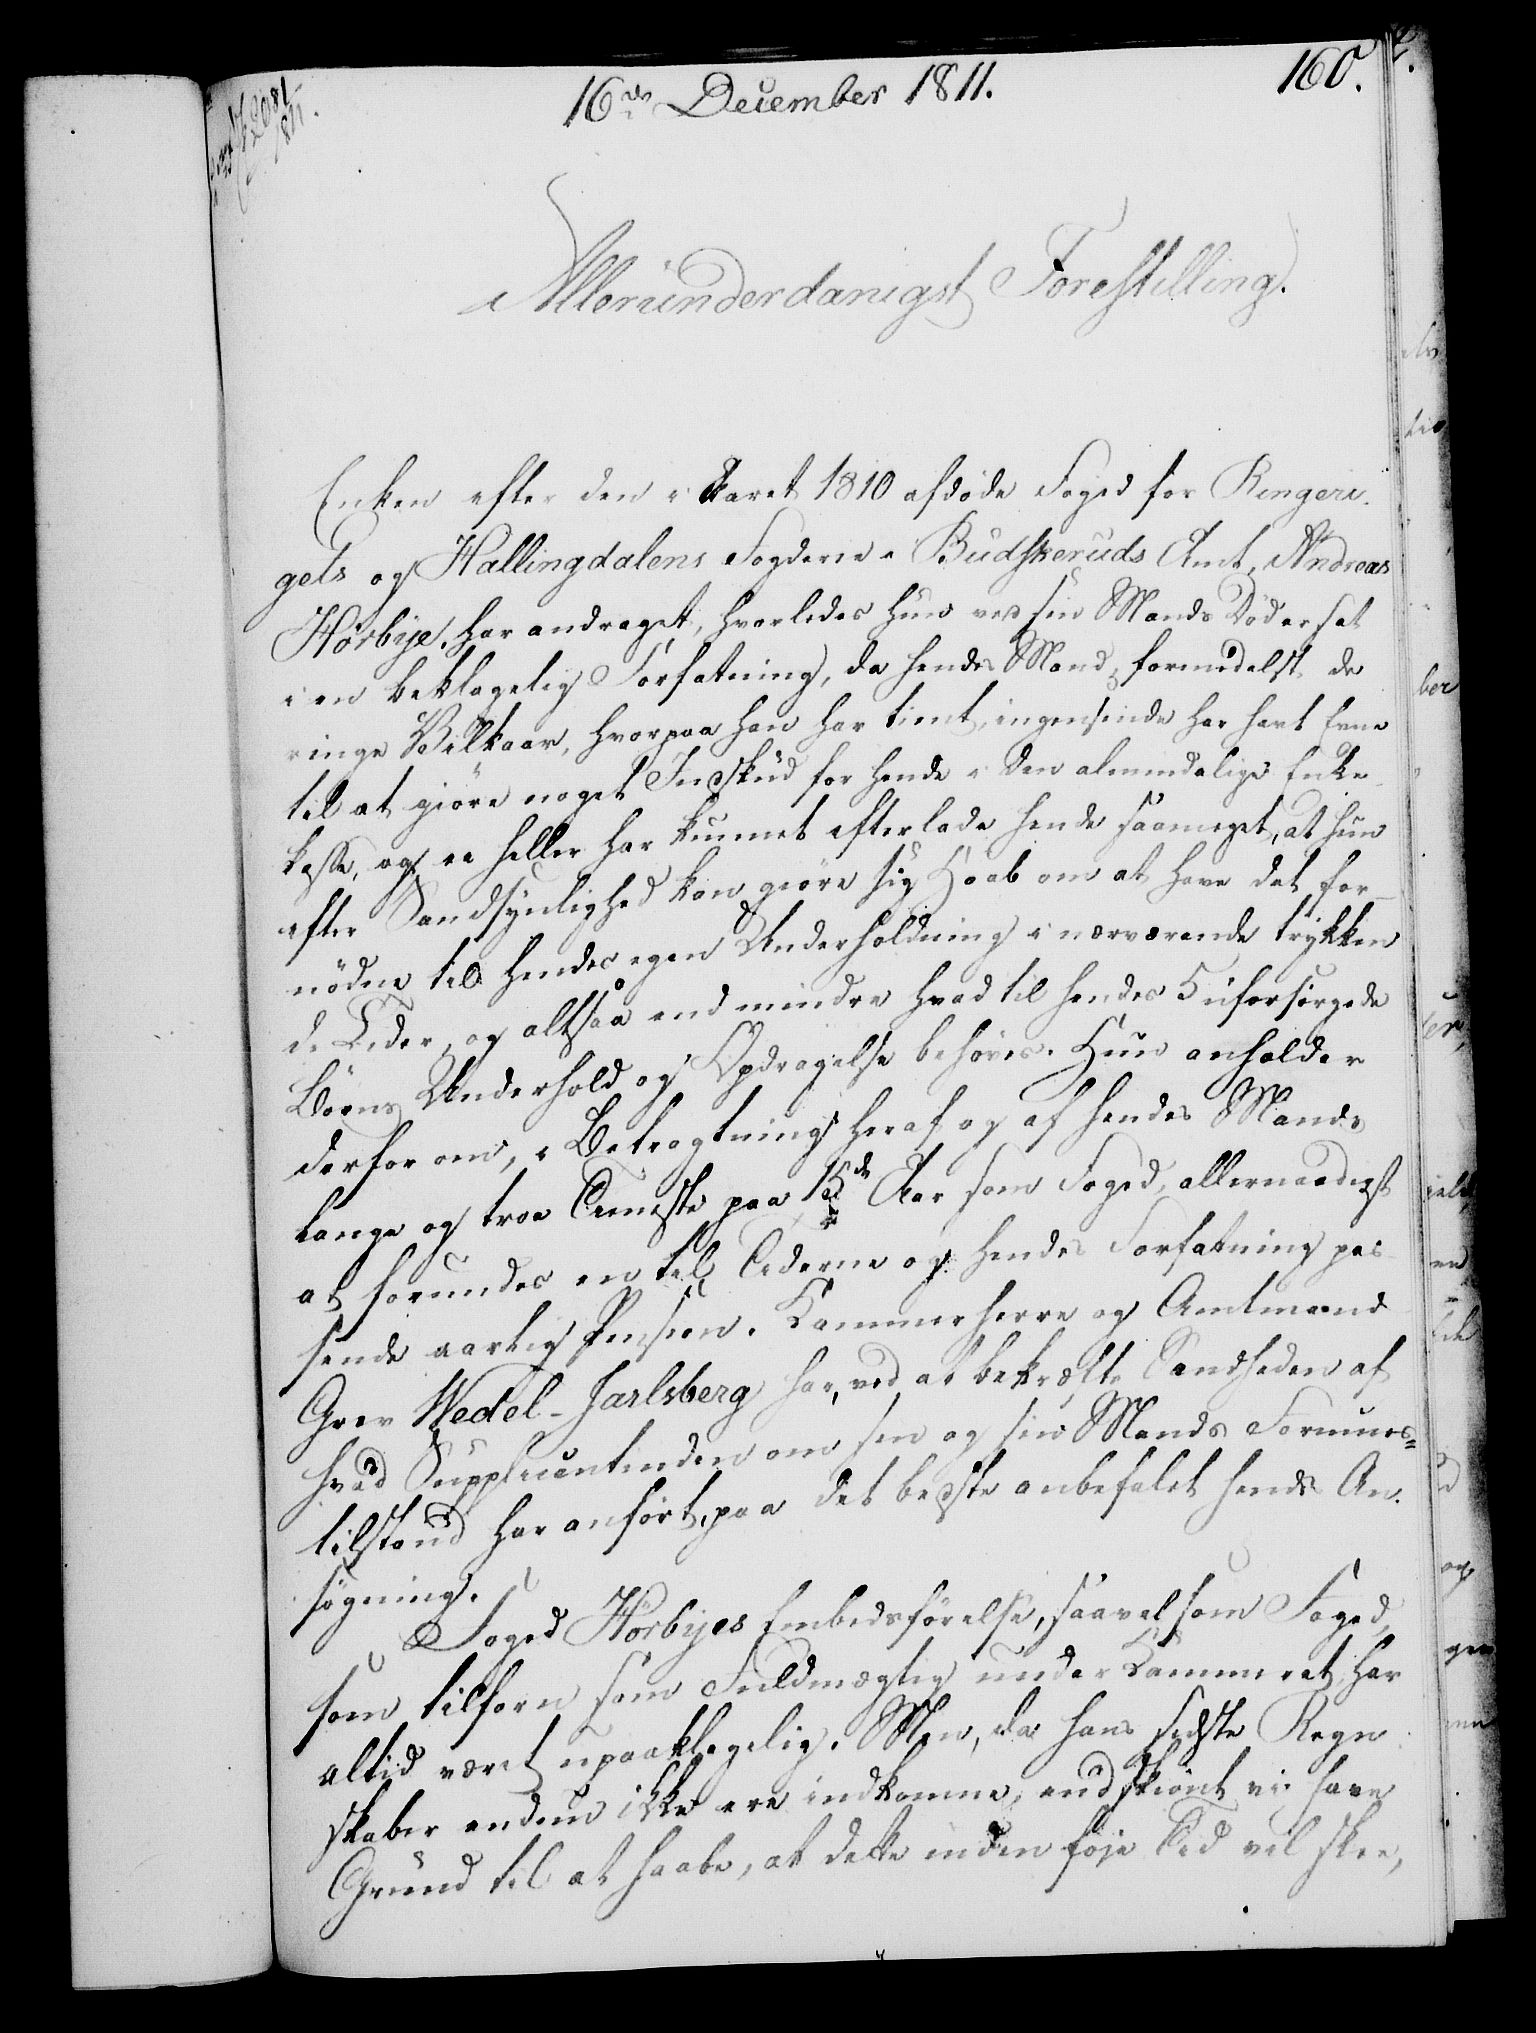 16de December 1811.
160.
2081
1811.
Allerunderdanigst Forestilling.
Enken efter den i Aaret 1810 afdøde Foged for Ringeri-
gets og Hallingdalens Fogderie i Budskeruds Amt, Andreas
Hörbye, har andraget, hvorledes hun ved sin Mands Död er sat
i en beklagelig Forfatning, da hendes Mand, formedelst de
ringe Vilkaar, hvorpaa han har tient, ingensinde har havt Evne
til at giöre noget Indskud for hende i den almindelige Enke-
kasse, og ei heller har kunnet efterlade hende saameget, at hun
efter Sandsynlighed kan giöre sig Haab om at have det for-
nödne til hendes egen Underholdning i nærværende trykken
de Tider, og altsaa end mindre hvad til hendes 5 uforsörgede
Börns Underhold og Opdragelse behöves. Hun anholder
derfor om, i Betragtning heraf og af hendes Mands
lange og troe Tieneste paa 15de Aar som Foged, allernaadigst
at forundes en til Tiderne og hendes Forfatning pas-
sende aarlig Pension. Kammerherre og Amtmand
Grev Wedel-Jarlsberg har, ved at bekræfte Sandheden af
hvad Supplicantinden om sin og sin Mands Formues=
tilstand har anfört, paa det bedste anbefalet hendes An-
sögning.
Foged Hörbyes Embedsförelse, saavel som Foged,
som tilforn som Fuldmægtig under Kammeret, har
altid været upaaklagelig. Men, da hans sidste Regn
skaber endnu ikke ere indkomne, endskiönt vi have
Grund til at haabe, at dette inden föje Tid vil skee,